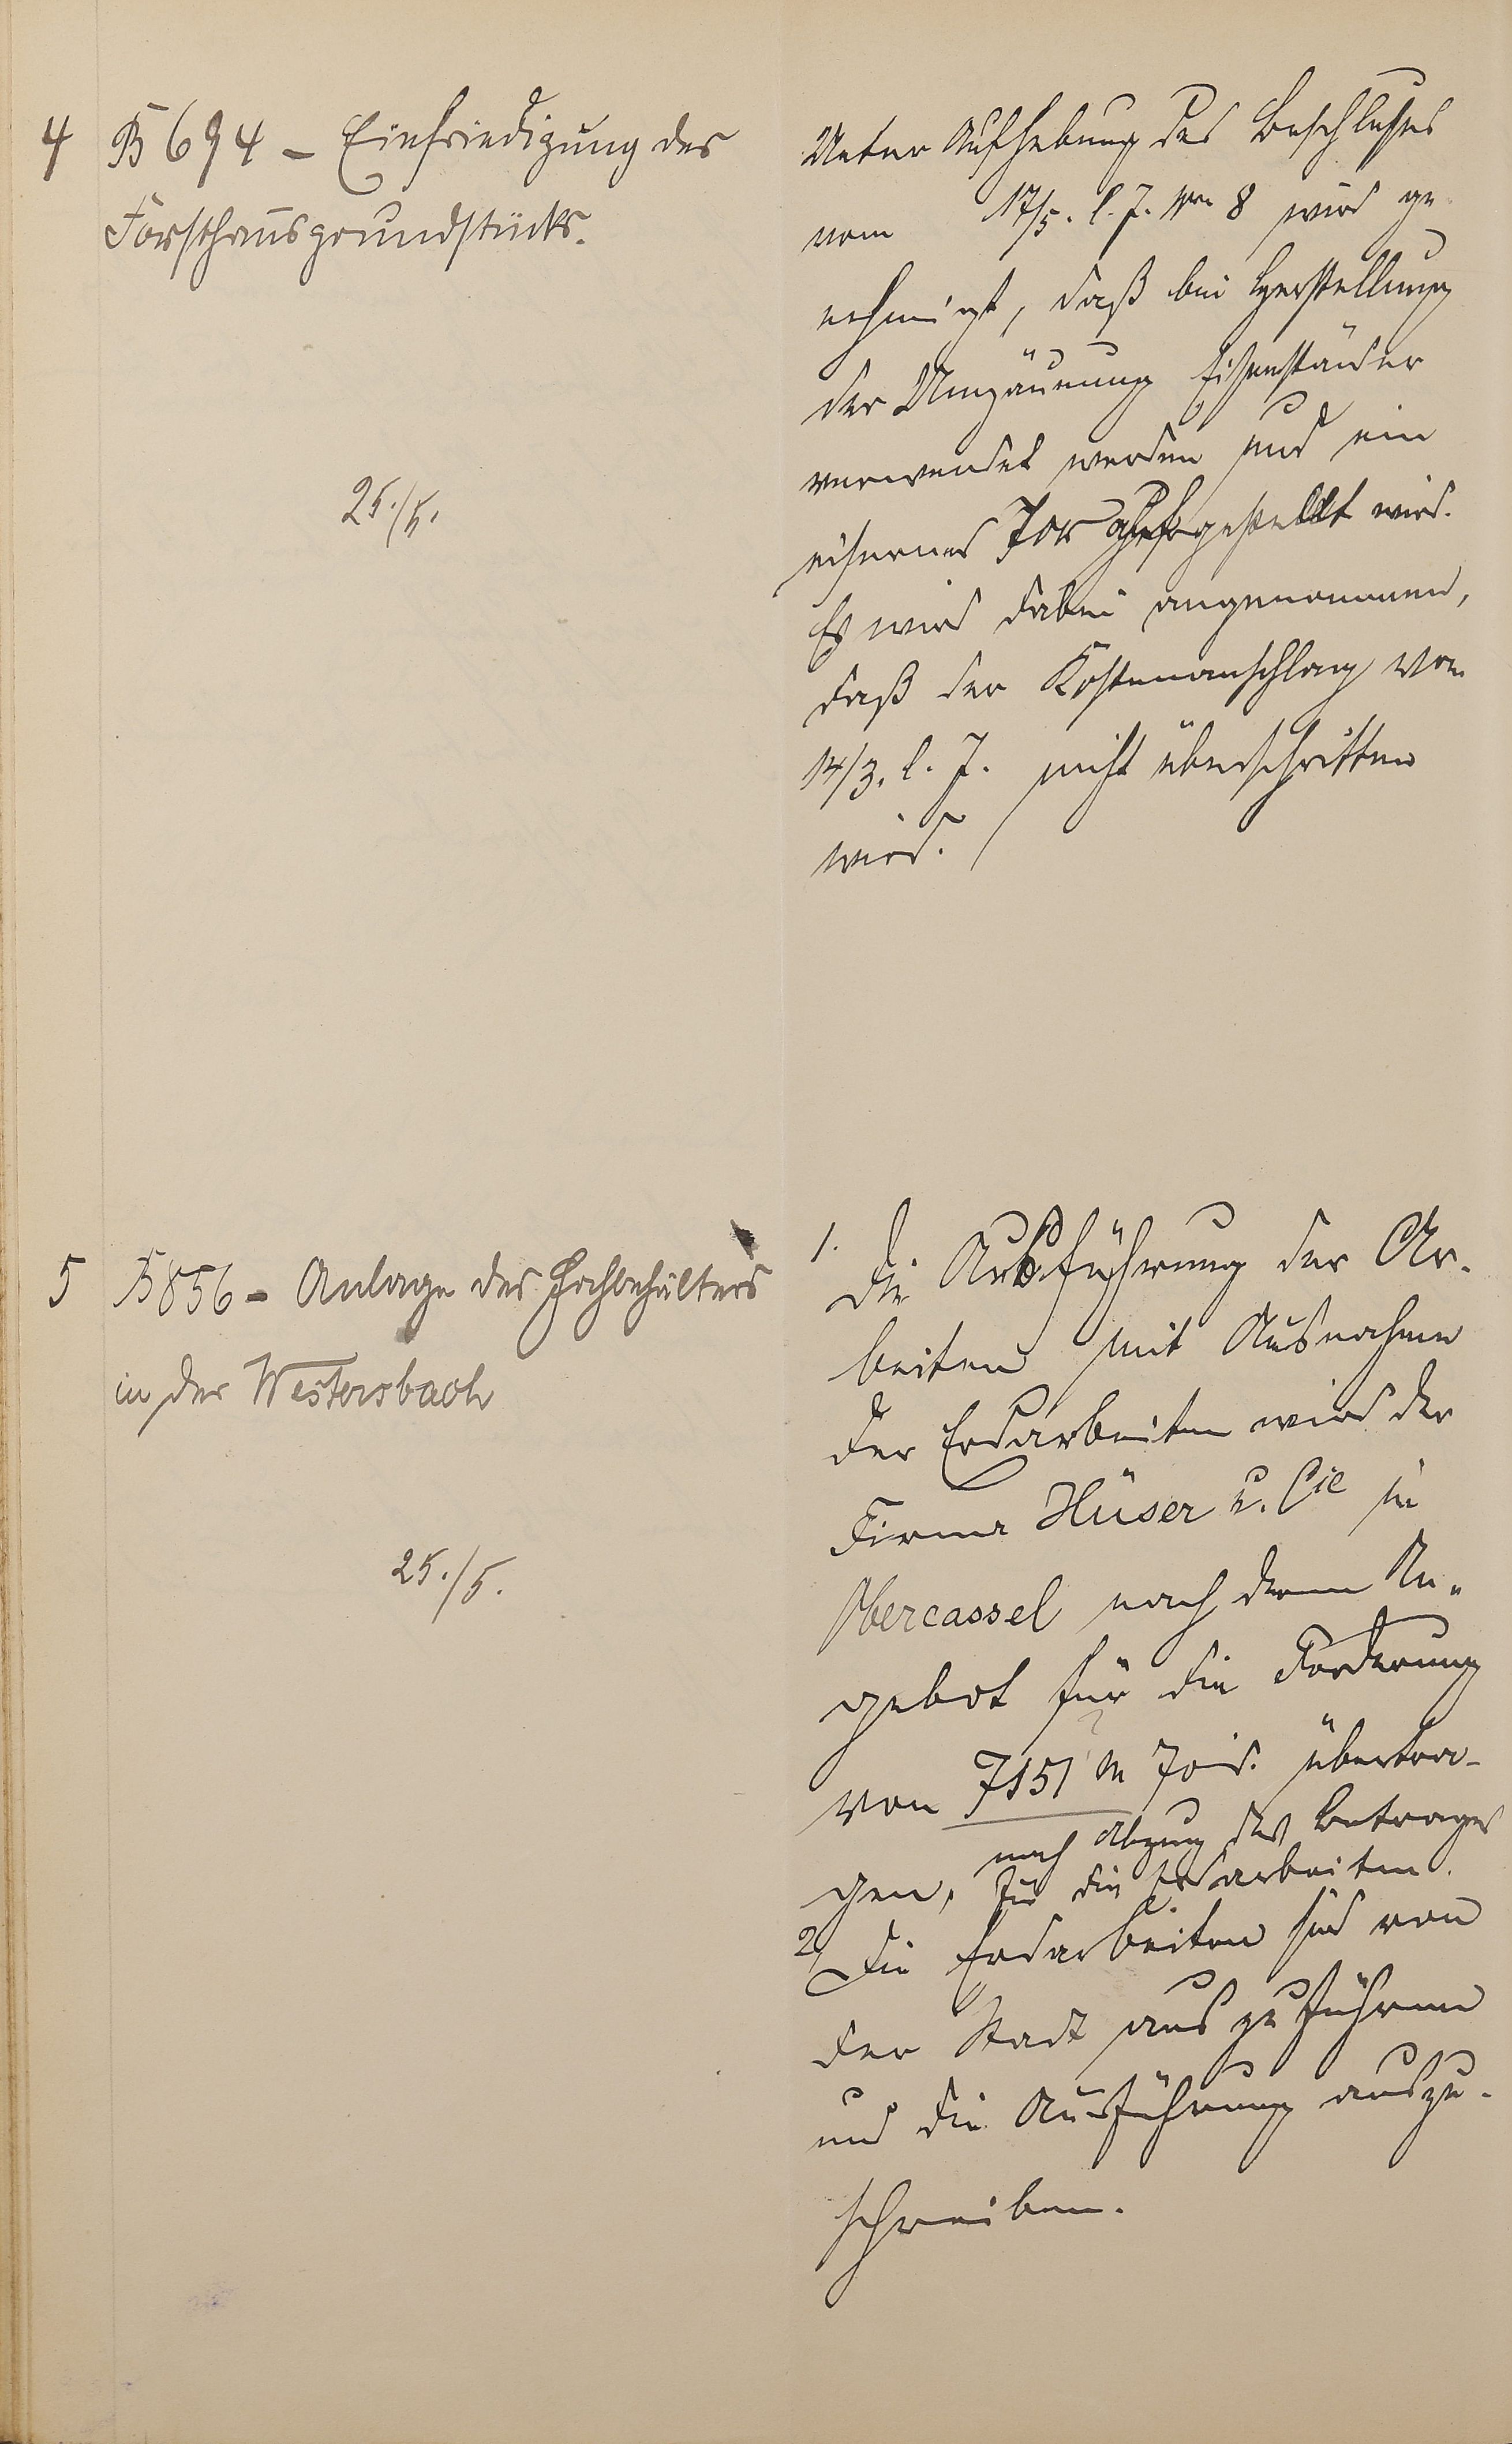 4 B 694 – Einfriedigung des
Forsthausgrundstücks.
25./5.
Unter Aufhebung des Beschlusses
vom 17/5. l. J. Nro 8 wird ge
nehmigt, daß bei Herstellung
der Umzäunung Eisenständer
verwendet werden und ein
eisernes Tor aufgestellt wird.
Es wird dabei angenommen,
daß der Kostenanschlag vom
14/3. l. J. nicht überschritten
wird.
5 B 856 – Anlage des Hochbehälters
in der Westersbach
25./5.
1. Die Ausführung der Ar-
beiten mit Ausnahme
der Erdarbeiten wird der
Firma Hüser u. Cie in
Obercassel nach deren An-
gebot für die Forderung
von 7151 M übertra-
gen, nach Abzug des Betrages
für die Erdarbeiten.
2, Die Erdarbeiten sind von
der Stadt auszuführen
und die Ausführung auszu-
schreiben.